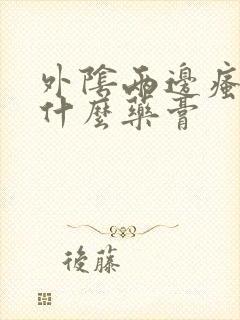 外陰兩邊瘙
什麼藥膏
後藤